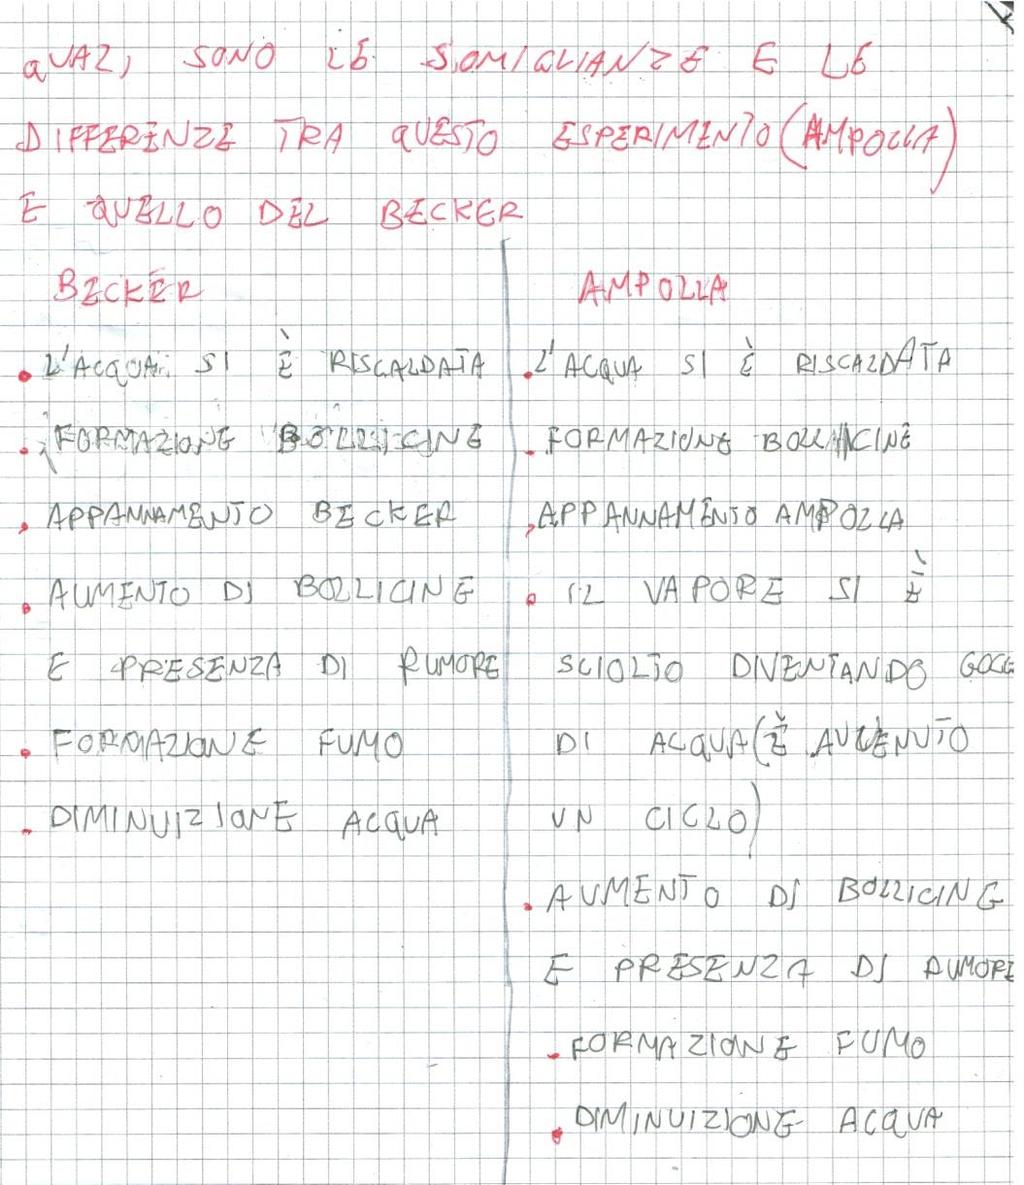 QUALI SONO LE SOMIGLIANZE E LE
DIFFERENZE TRA QUESTO ESPERIMENTO (AMPOLLA)
E QUELLO DEL BECKER
BECKER
• L'ACQUA SI È RISCALDATA
• FORMAZIONE BOLLICINE
• APPANNAMENTO BECKER
• AUMENTO DI BOLLICINE
E PRESENZA DI RUMORE
• FORMAZIONE FUMO
• DIMINUIZIONE ACQUA
AMPOLLA
• L'ACQUA SI È RISCALDATA
• FORMAZIONE BOLLICINE
• APPANNAMENTO AMPOLLA
• IL VAPORE SI È
SCIOLTO DIVENTANDO GOCC
DI ACQUA (È AVVENUTO
UN CICLO)
• AUMENTO DI BOLLICINE
E PRESENZA DI RUMORE
• FORMAZIONE FUMO
• DIMINUIZIONE ACQUA